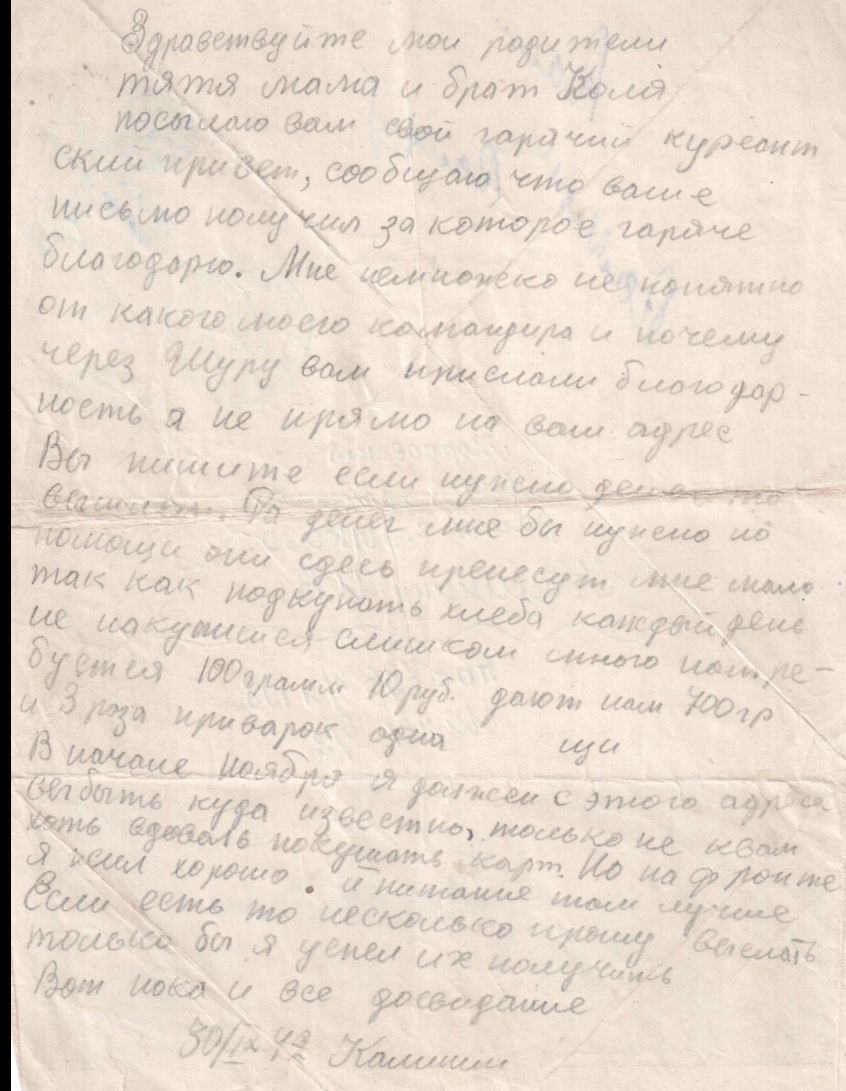 Здравствуйте мои родители
тятя мама и брат Коля
посылаю вам свой гарячий курсант
ский привет, сообщаю что ваше
письмо получил за которое гаряче
благодарю. Мне немножко не понятно
от какого моего командира и почему
через Шуру вам прислали благодар-
ность а не прямо на ваш адрес
Вы пишите если нужно денег то
вышлем. Да денег мне бы нужно но
помощи они сдесь пренесут мне мало
так как подкупать хлеба каждый день
не накупишся слишком много потре-
буется 100грамм 10руб. дают нам 700гр
и 3 раза приварок одна щи
В начале Ноября я должен с этого адреса
выбыть куда известно, только не квам
хоть вдоваль покушать карт. Но на фронте
я жил хорошо и питание там лучше
Если есть то несколько прошу выслать
только бы я успел их получить
Вот пока и все досвидание
30/IX 42 Калинин